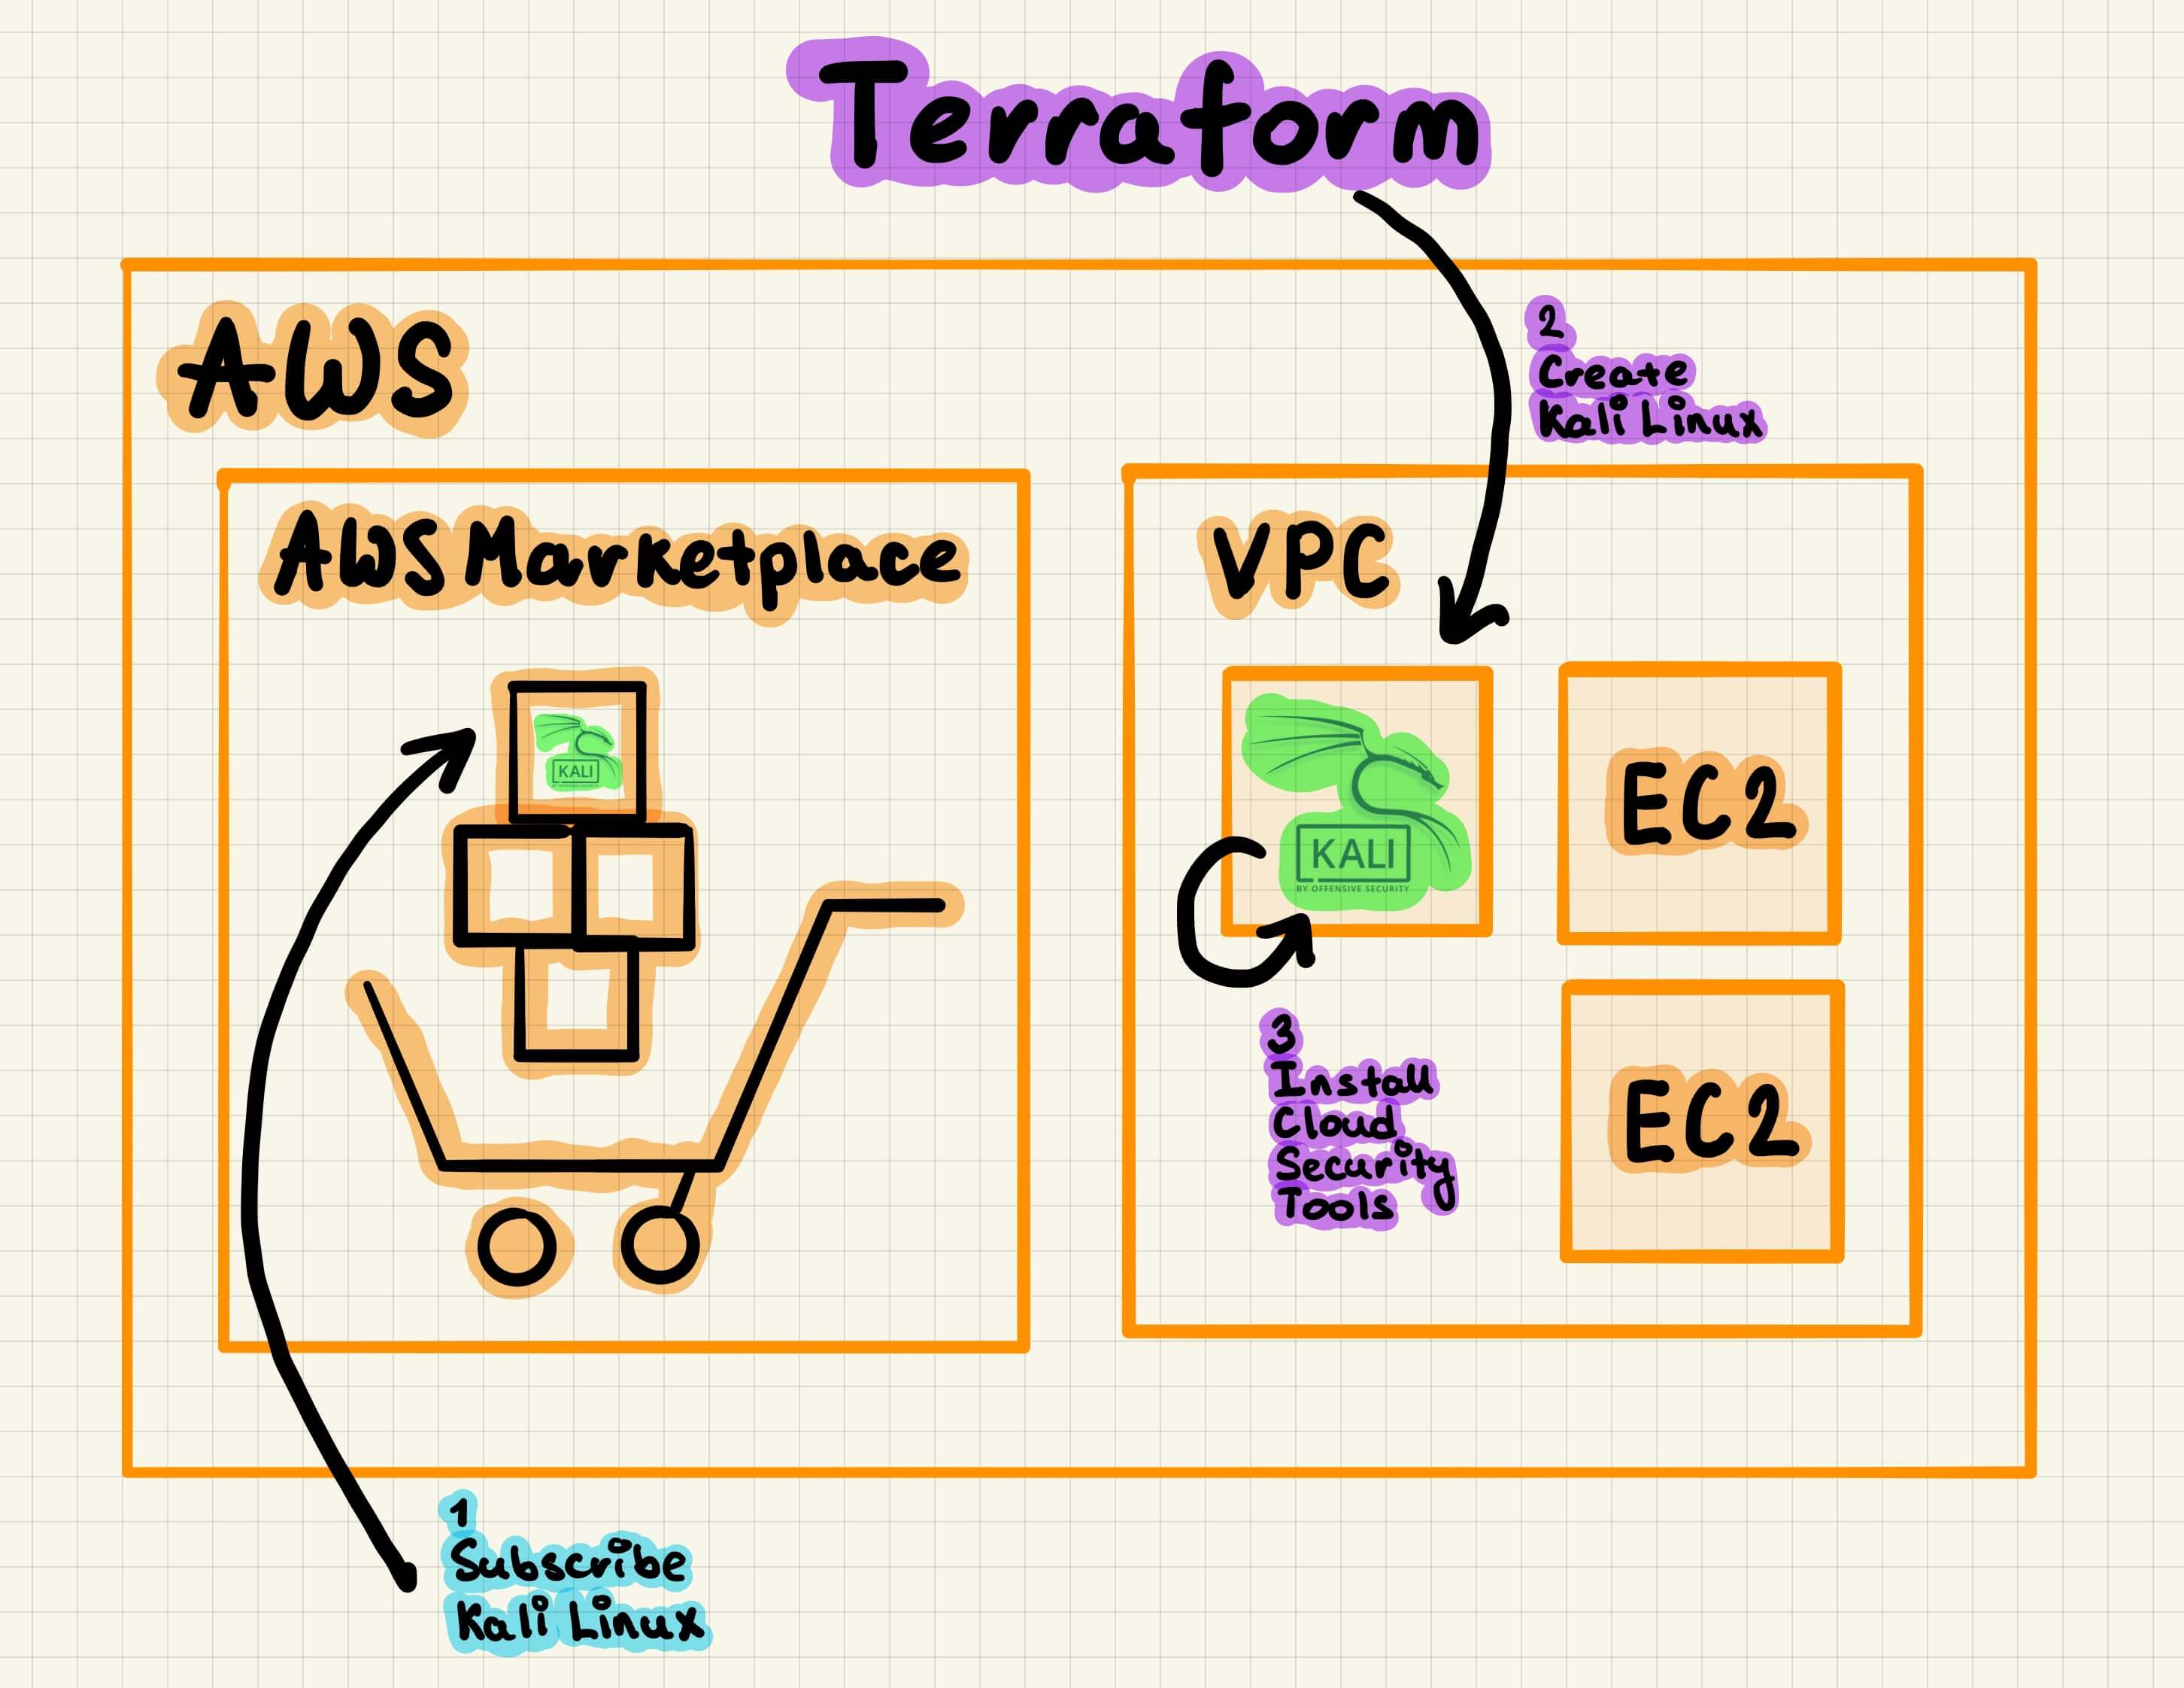 Terraform
AWS
2
Create
Kali Linux
AWS Marketplace
VPC
KALI
BY OFFENSIVE SECURITY
KALI
BY OFFENSIVE SECURITY
EC2
EC2
3
Install
Cloud
Security
Tools
1
Subscribe
Kali Linux